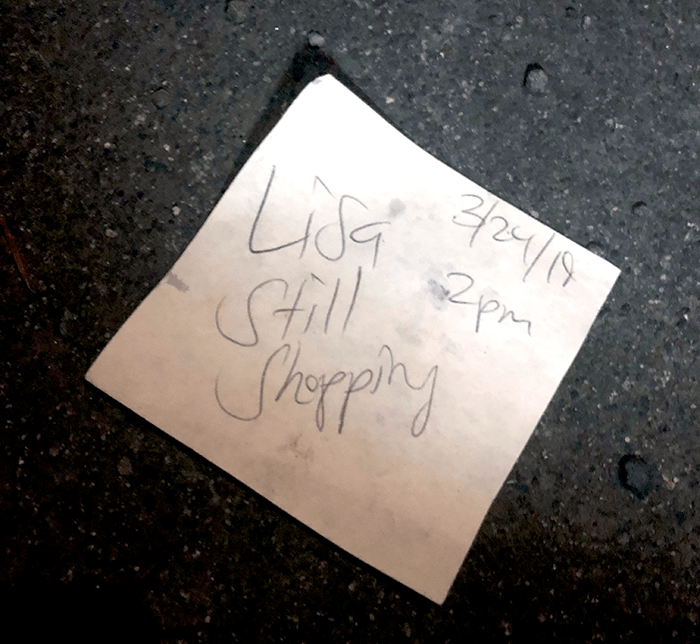 Lisa
Still
Shopping
3/24/19
2pm